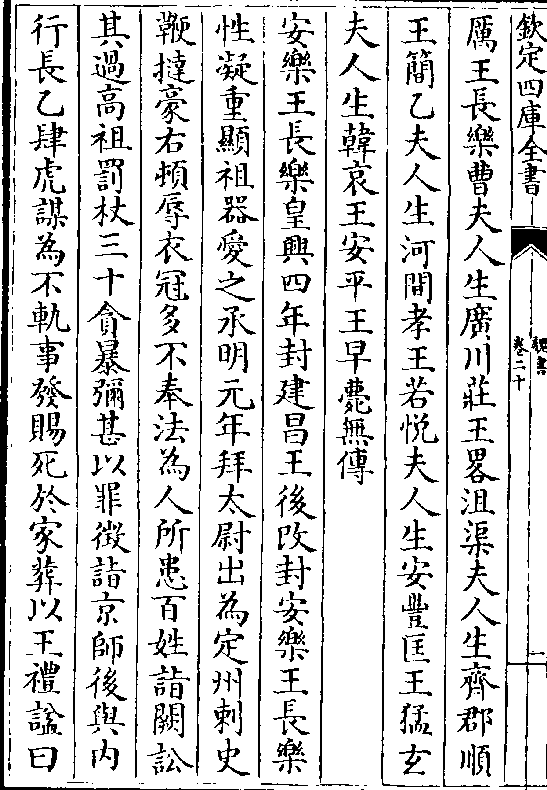 欽定四庫全書
魏書
卷二十
厲王長樂曹夫人生廣川莊王畧沮渠夫人生齊郡順
王簡乙夫人生河間孝王若悅夫人生安豐匡王猛玄
夫人生韓哀王安平王早薨無傳
安樂王長樂皇興四年封建昌王後改封安樂王長樂
性凝重顯祖器愛之承明元年拜太尉出為定州刺史
鞭撻豪右頓辱衣冠多不奉法為人所患百姓詣闕訟
其過高祖罰杖三十貪暴彌甚以罪徵詣京師後與內
行長乙肆虎謀為不軌事發賜死於家葬以王禮諡曰